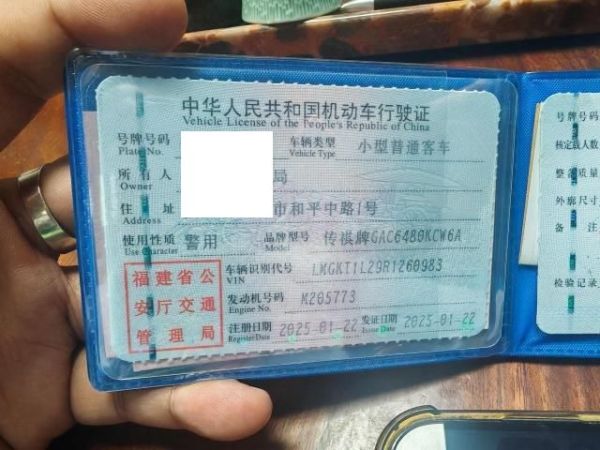 中华人民共和国机动车行驶证
Vehicle License of the People's Republic of China
号牌号码
Plate No.
车辆类型 小型普通客车
Vehicle Type
所有人 局
Owner
住址 市和平中路1号
使用性质 警用
Use Character
品牌型号 传祺牌GAC6480KCW6A
Model
福建省公
安厅交通
管理局
车辆识别代号 LMGKT1L29R1260983
VIN
发动机号码 K205773
Engine No.
注册日期 2025-01-22
Register Date
发证日期 2025-01-22
Issue Date
号牌号码
核定载人数
整备质量
外廓尺寸
备注
检验记录